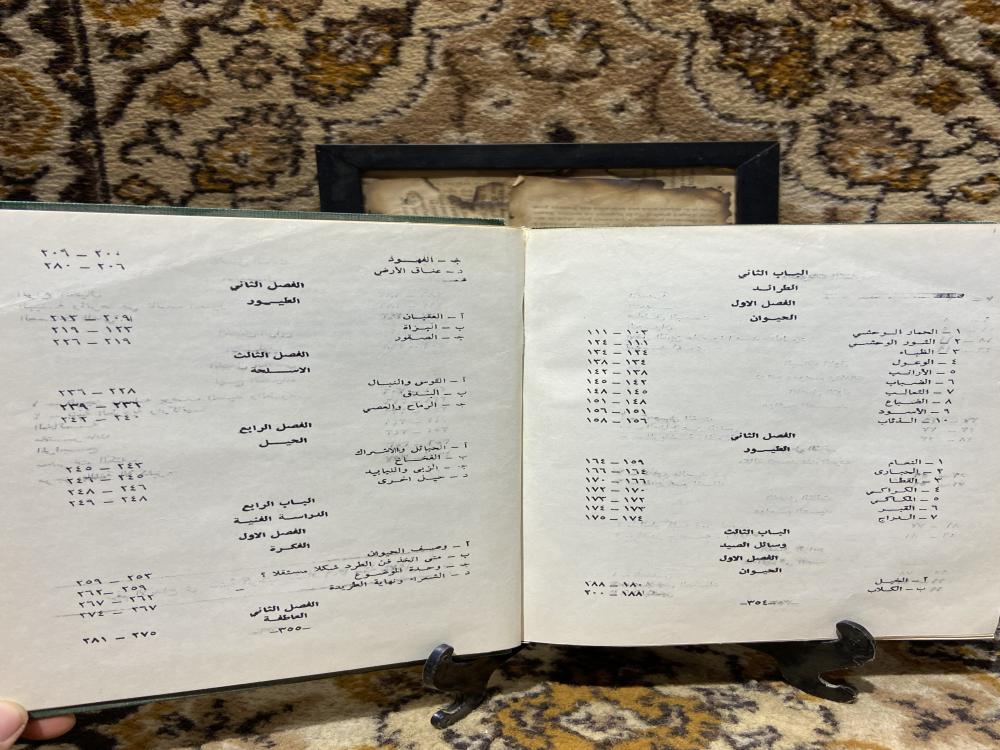 الباب الثاني
الطرائد
الفصل الاول
الحيوان
١ – الحمار الوحشي ١٠٣ – ١١١
٢ – الثور الوحشي ١١١ – ١٢٤
٣ – الظباء ١٢٤ – ١٣٤
٤ – الوعول ١٣٤ – ١٣٨
٥ – الأرانب ١٣٨ – ١٤٢
٦ – الضباب ١٤٢ – ١٤٥
٧ – الثعالب ١٤٥ – ١٤٨
٨ – الضباع ١٤٨ – ١٥١
٩ – الأسود ١٥١ – ١٥٦
١٠ – الذئاب ١٥٦ – ١٥٨
الفصل الثاني
الطيور
١ – النعام ١٥٩ – ١٦٤
٢ – الحبارى ١٦٤ – ١٦٦
٣ – القطا ١٦٦ – ١٧٠
٤ – الكراكي ١٧٠ – ١٧٢
٥ – المكاكي ١٧٢ – ١٧٣
٦ – القبر ١٧٣ – ١٧٤
٧ – الدراج ١٧٤ – ١٧٥
الباب الثالث
وسائل الصيد
الفصل الاول
الحيوان
آ – الخيل ١٨٠ – ١٨٨
ب – الكلاب ١٨٨ – ٢٠٠
–٣٥٤–
جـ – الفهود ٢٠٠ – ٢٠٦
د – عناق الأرض ٢٠٦ – ٢٨٠
الفصل الثاني
الطيور
آ – العقبان ٢٠٩ – ٢١٣
ب – البزاة ١٢٣ – ٢١٩
جـ – الصقور ٢١٩ – ٢٢٦
الفصل الثالث
الاسلحة
آ – القوس والنبال ٢٢٨ – ٢٣٦
ب – البندق ٢٣٦ – ٢٣٩
جـ – الرماح والعصي ٢٤٠ – ٢٤٢
الفصل الرابع
الحيل
آ – الحبائل والاشراك ٢٤٣ – ٢٤٥
ب – الفخاخ ٢٤٥ – ٢٤٦
جـ – الزبى والنبابيد ٢٤٦ – ٢٤٨
د – حيل اخرى ٢٤٨ – ٢٤٩
الباب الرابع
الدراسة الفنية
الفصل الاول
الفكرة
آ – وصف الحيوان ٢٥٣ – ٢٥٩
ب – متى اتخذ فن الطرد شكلا مستقلا ؟ ٢٥٩ – ٢٦٢
جـ – وحدة الموضوع ٢٦٢ – ٢٦٧
د – الشعراء ونهاية الطريدة ٢٦٧ – ٢٧٤
الفصل الثاني
العاطفة
٢٧٥ – ٢٨١
–٣٥٥–